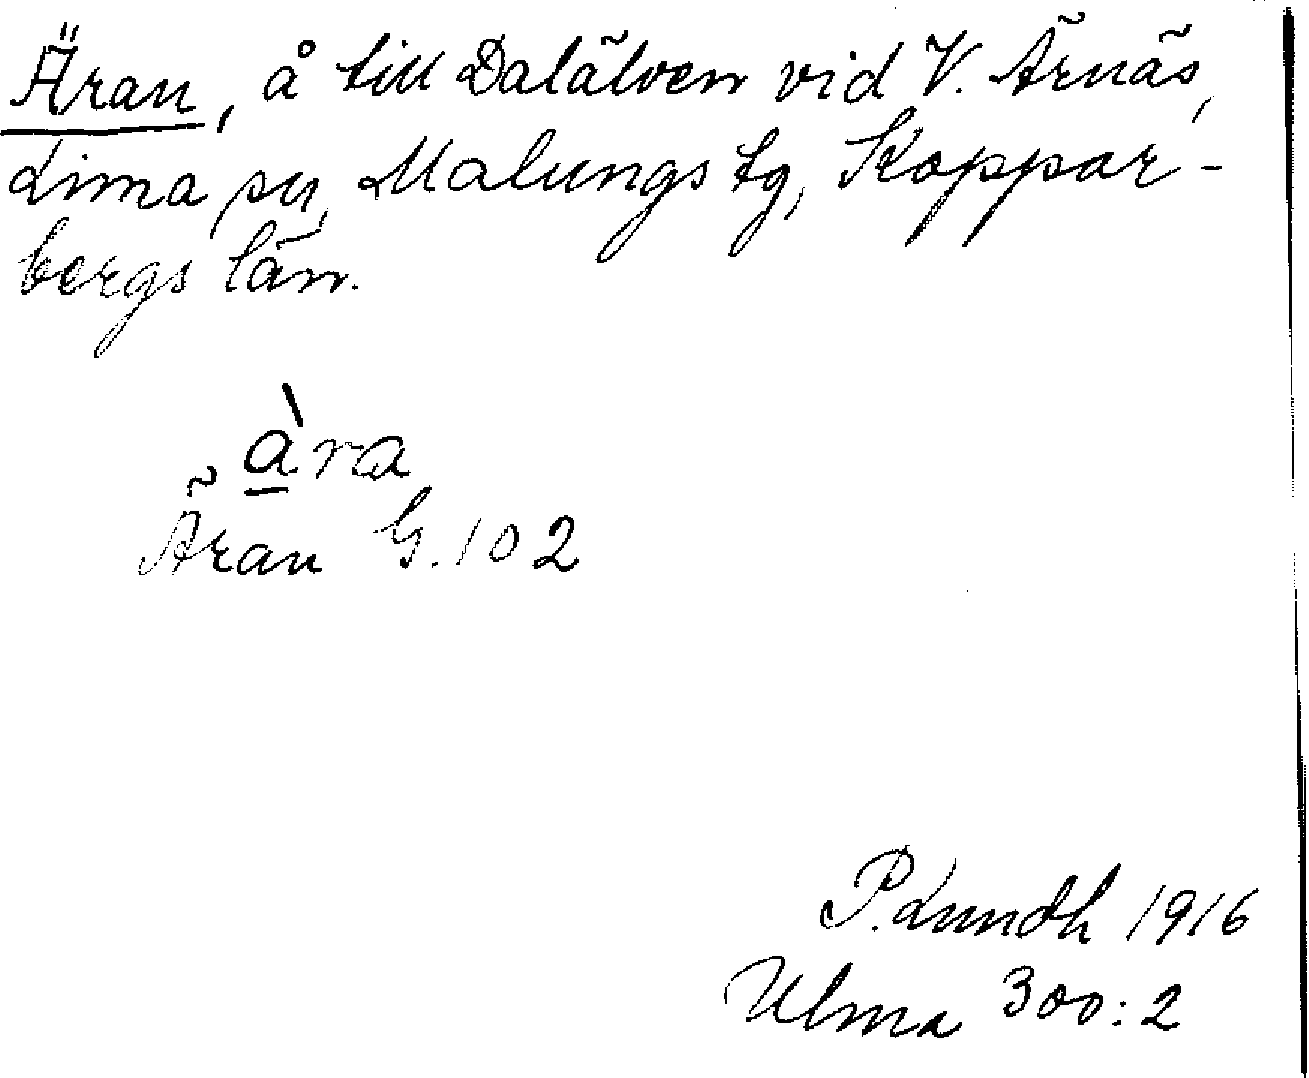 Äran, å till Dalälven vid V. Ärnäs,
Lima sn, Malungs tg, Koppar-
bergs län.
àra
Äran G. 102
P. Lundh 1916
Ulma 300:2